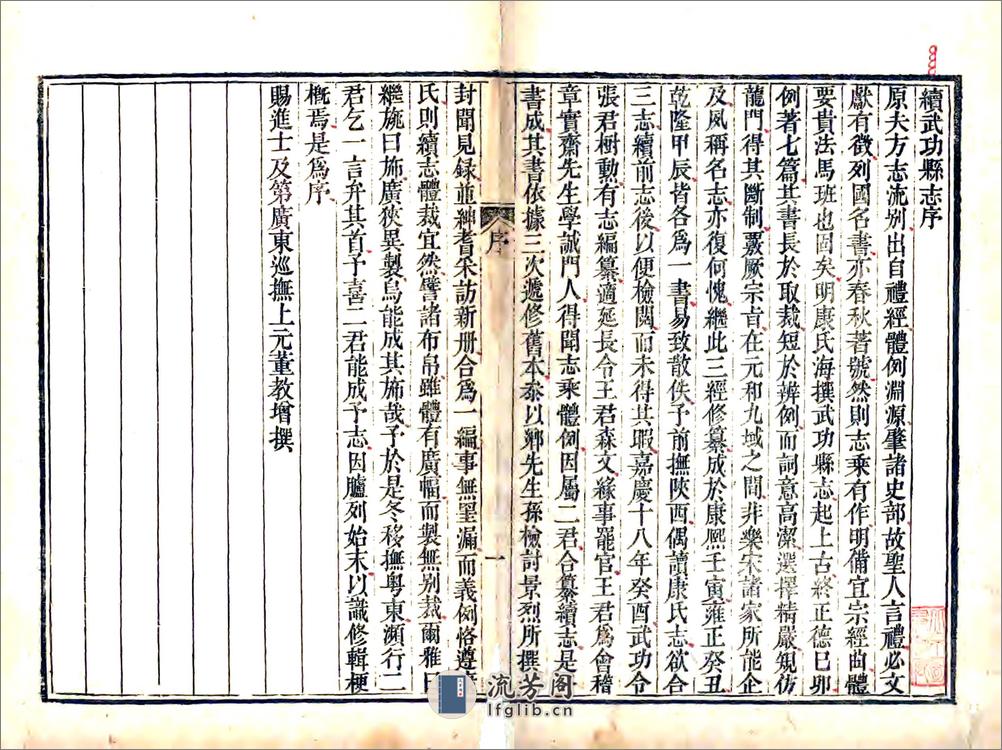 續武功縣志序
原夫方志流别出自禮經體例淵源肇諸史部故聖人言禮必文
獻有徵列國名書亦春秋著號然則志乘有作明備宜宗經曲體
要貴法馬班也固矣明康氏海撰武功縣志起上古終正德己卯
例著七篇其書長於取裁短於辨例而詞意高潔選擇精嚴規仿
龍門得其斷制覈厥宗旨在元和九域之間非樂宋諸家所能企
及夙稱名志亦復何愧繼此三經修纂成於康熙壬寅雍正癸丑
乾隆甲辰皆各爲一書易致散佚予前撫陜西偶讀康氏志欲合
三志續前志後以便檢閱而未得其暇嘉慶十八年癸酉武功令
張君樹勳有志編纂適延長令王君森文緣事罷官王君爲會稽
章實齋先生學誠門人得聞志乘體例因屬二君合纂續志是
書成其書依據三次遞修舊本泰以鄉先生孫檢討景烈所撰
封聞見録並紳耆采訪新册合爲一編事無罣漏而義例恪遵
氏則續志體裁宜然譬諸布帛雖體有廣幅而製無别裁爾雅
繼旐曰旆廣狹異製烏能成其旆哉予於是冬移撫粤東瀕行二
君乞一言弁其首予喜二君能成予志因臚列始末以識修輯梗
概焉是爲序
賜進士及第廣東巡撫上元董教增撰
序
一
流芳阁
lfglib.cn